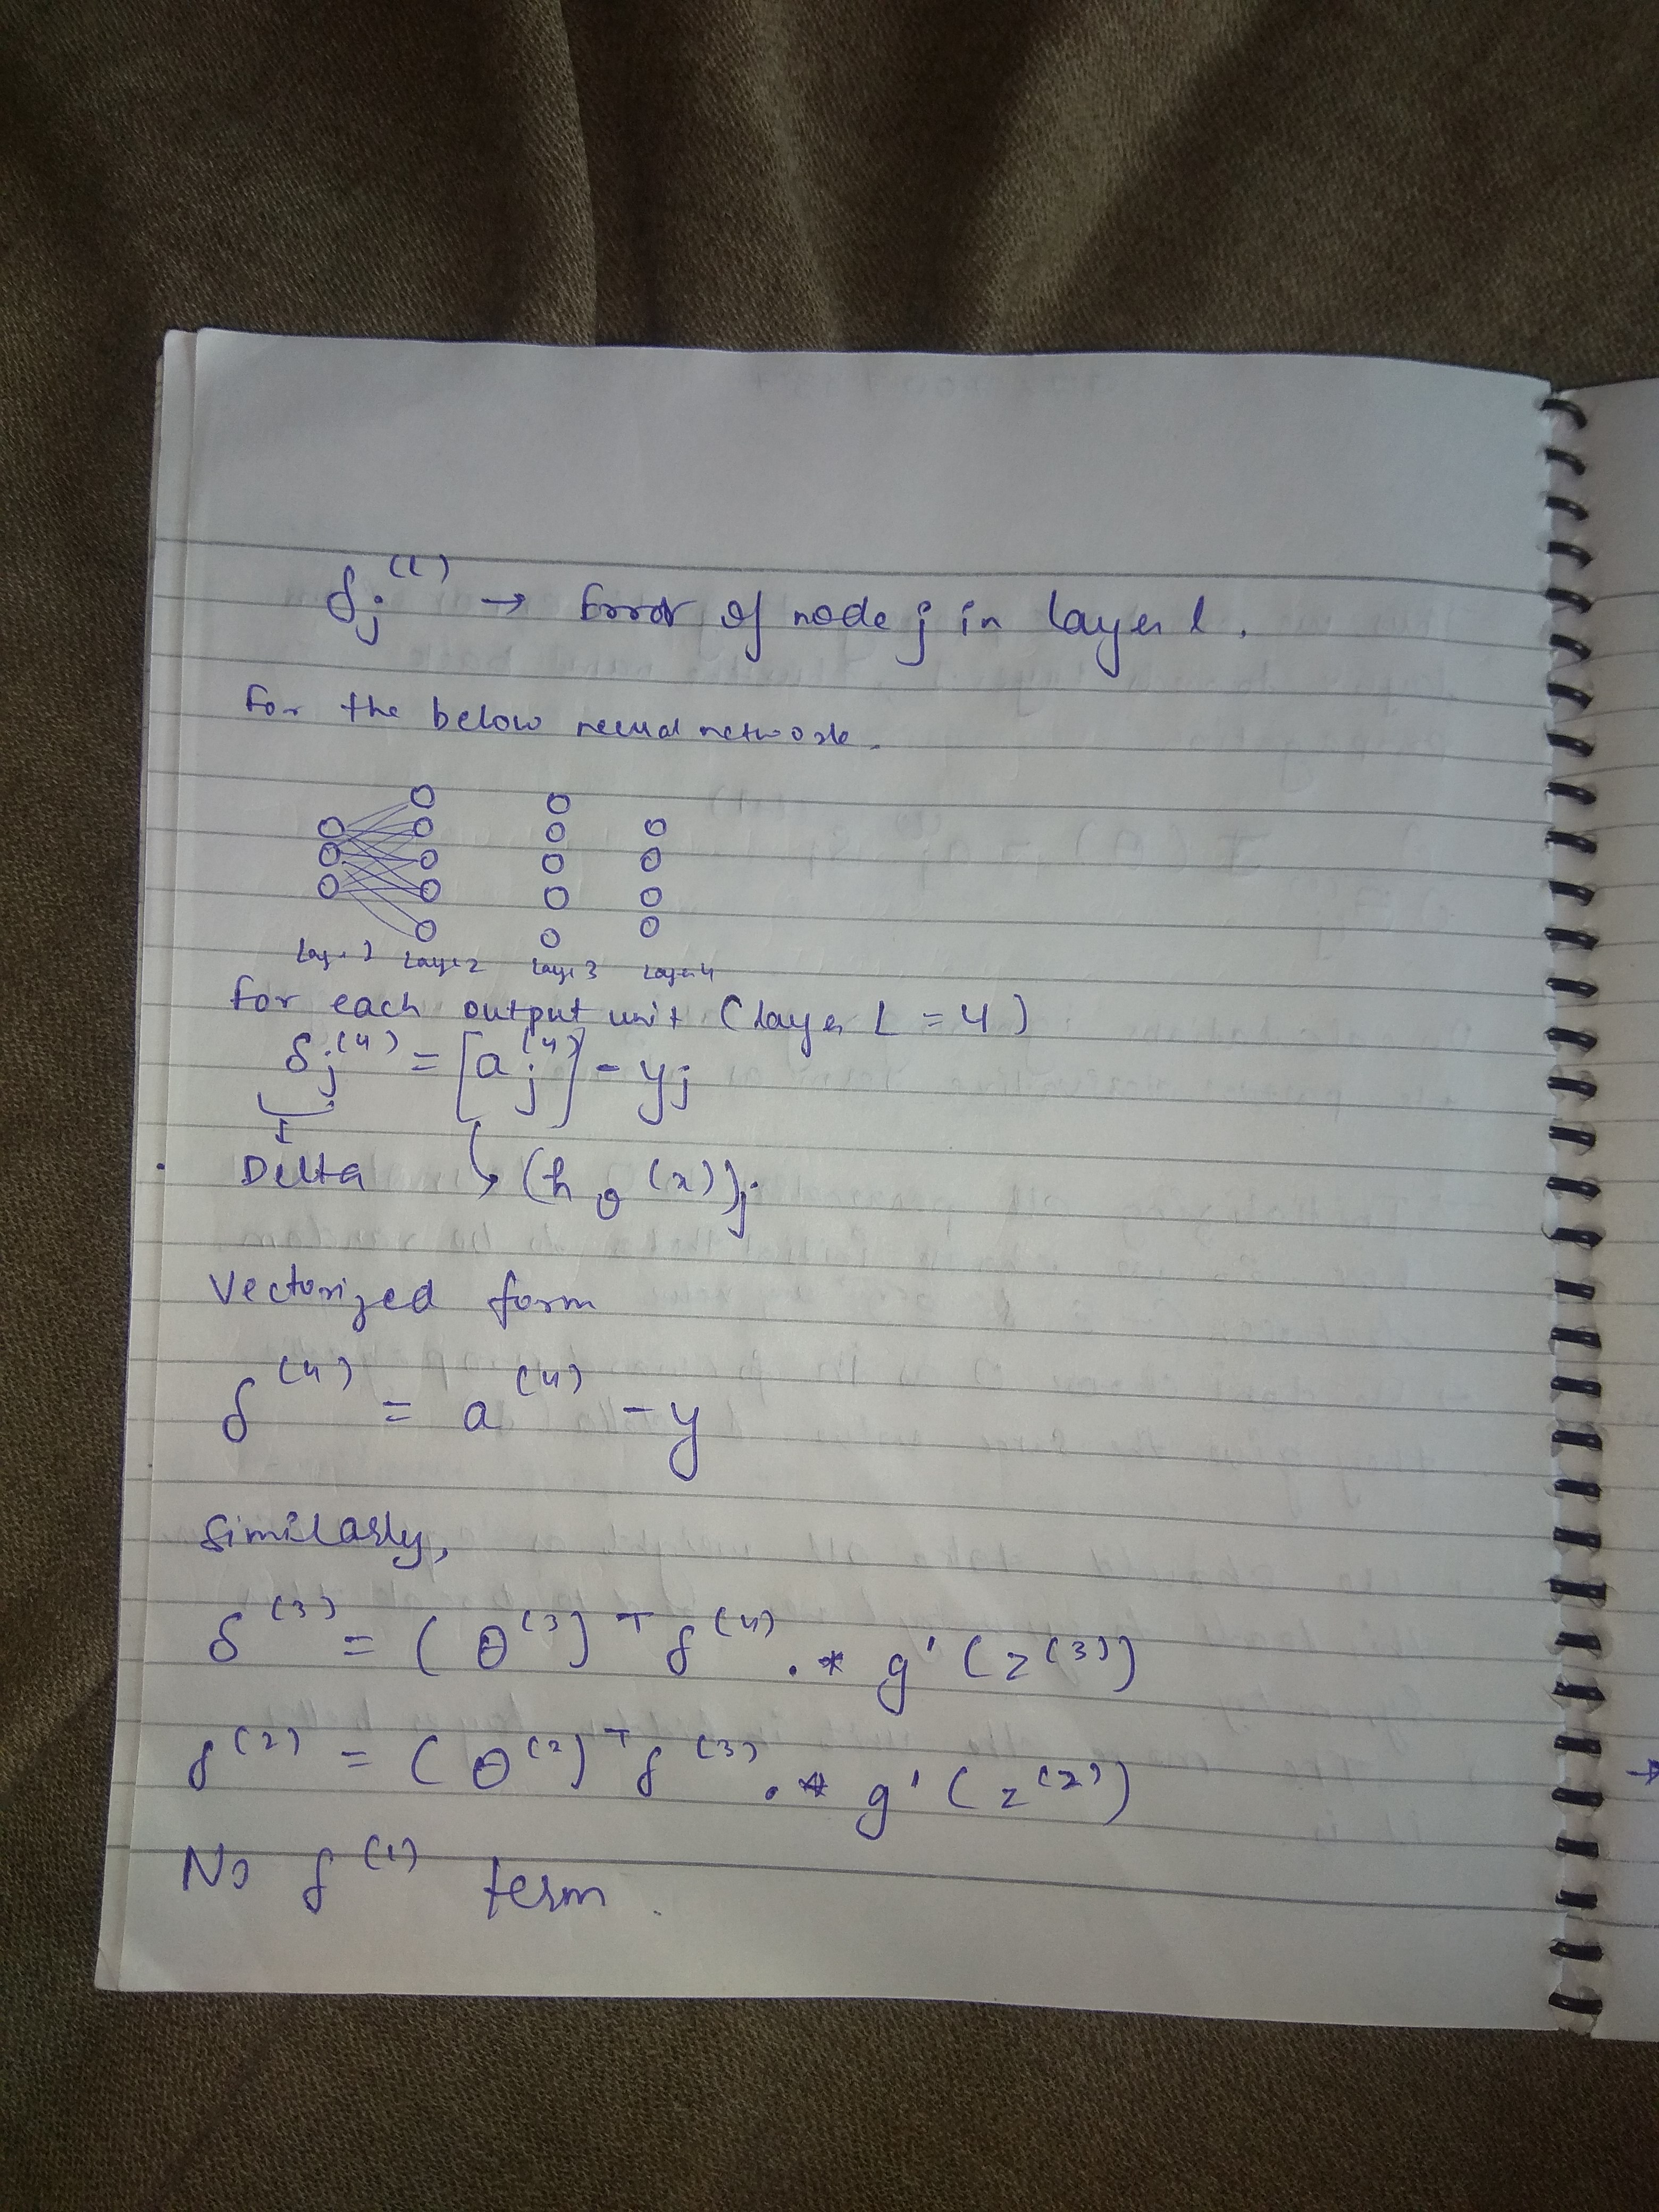 δj^(l) → Error of node j in layer l.
For the below neural network.
Layer 1 Layer 2 Layer 3 Layer 4
for each output unit (layer L = 4)
δj^(4) = [aj^(4)] - yj
Delta (hθ(x))j
Vectorized form
δ^(4) = a^(4) - y
Similarly,
δ^(3) = (θ^(3))^T δ^(4) .* g'(z^(3))
δ^(2) = (θ^(2))^T δ^(3) .* g'(z^(2))
No δ^(1) term.